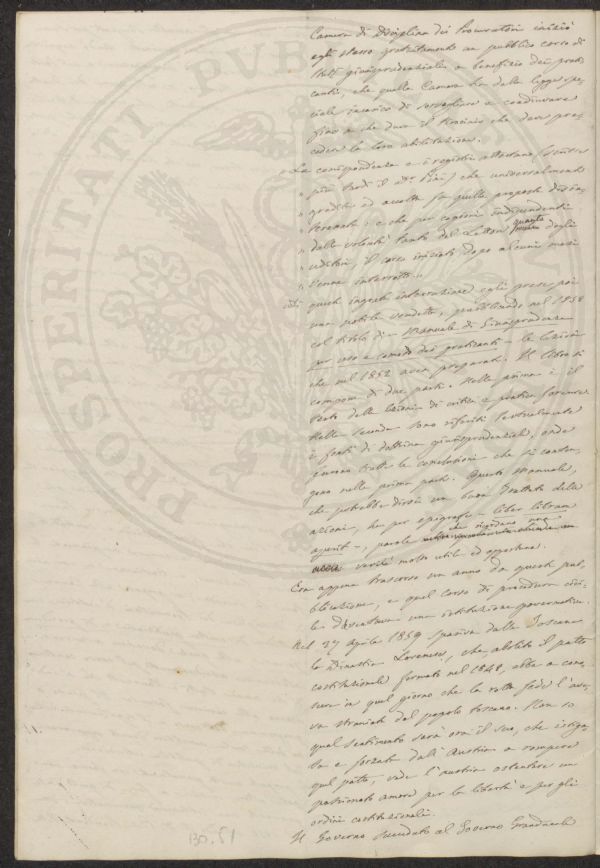 Camera di Disciplina dei Procuratori iniziò
egli stesso gratuitamente un pubblico corso di
studi giurisprudenziali a benefizio dei prati
canti, che quella Camera ha dalla legge spe
ciale incarico di sorvegliare e coadiuvare
fino a che dura il tirocinio che deve pre
cedere la loro abilitazione.
„ La corrispondenza e i registri attestano (scriveva
„ più tardi il
„ gradita ed accolta fu quella proposta disin
„ teressata: e che per cagioni indipendenti
„ dalla volontà tanto del Lettore quanto degli
„ uditori, il corso iniziato, dopo alcuni mesi
„ venne interrotto. „
Di questa ingrata interruzione egli prese poi
una nobile vendetta, pubblicando nel 1858
col titolo di – Manuale di Giurisprudenza
per uso e comodo dei praticanti – le lezioni
che nel 1852 avea preparate. Il libro si
compone di due parti. Nella prima è il
testo delle lezioni di critica e pratica forense
nella seconda sono riferiti testualmente
i fonti di dottrina giurisprudenziale, onde
furono tratte le conclusioni che si conten
gono nella prima parte. Questo Manuale,
che potrebbe dirsi un buon Trattato delle
azioni, ha per epigrafe – liber librum
aperit –, parole che ricordano una
verità molto utile ed opportuna.
Era appena trascorso un anno da questa pub
blicazione, e quel corso di procedura civi
le diventava una istituzione governativa.
Nel 27 Aprile 1859 spariva dalla Toscana
la Dinastia Lorenese, che, abolito il patto
costituzionale fermato nel 1848, ebbe a cono
scere in quel giorno che la rotta fede l'ave
va straniata dal popolo toscano. Non so
qual sentimento sarà ora il suo, che istiga
ta e forzata dall'Austria a rompere
quel patto, vede l'Austria ostentare un
passionato amore per la libertà e per gli
ordini costituzionali.
Il Governo succeduto al Governo Granducale
PROSPERITATI PVB
BO.51